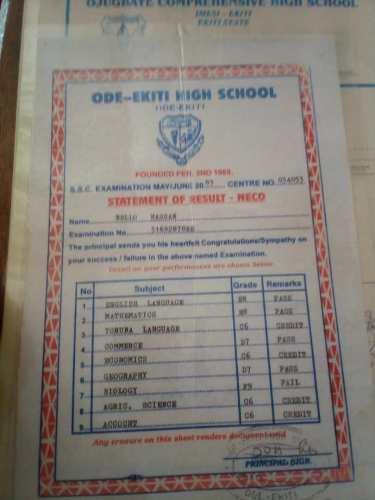 OJUGBAYE COMPREHENSIVE HIGH SCHOOL
IMESI - EKITI
EKITI STATE
ODE-EKITI HIGH SCHOOL
ODE-EKITI
FOUNDED FEB. 2ND 1969.
S.S.C. EXAMINATION MAY/JUNE 20 03 CENTRE NO. 054053
STATEMENT OF RESULT - NECO
Name BELLO HASSAN
Examination No.
The principal sends you his heartfelt Congratulations/Sympathy on
your success / failure in the above named Examination.
Detail on your performance are shown below
No Subject Grade Remarks
1 ENGLISH LANGUAGE E8 PASS
2 MATHEMATICS E8 PASS
3 YORUBA LANGUAGE C6 CREDIT
4 COMMERCE D7 PASS
5 ECONOMICS C6 CREDIT
6 GEOGRAPHY D7 PASS
7 BIOLOGY F9 FAIL
8 AGRIC. SCIENCE C6 CREDIT
9 ACCOUNT C6 CREDIT
Any erasure on this sheet renders document void
PRINCIPAL: SIGN.
ODE-EKITI